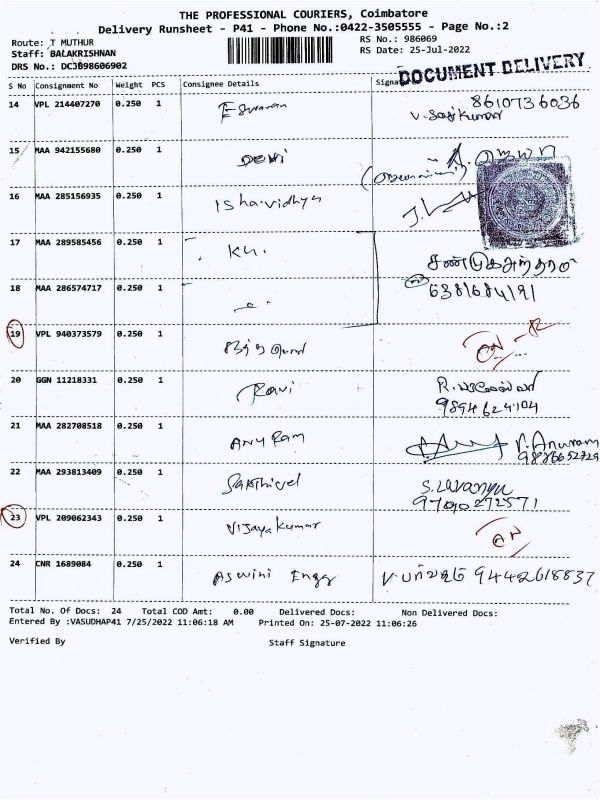 THE PROFESSIONAL COURIERS, Coimbatore
Delivery Runsheet - P41 - Phone No.:0422-3505555 - Page No.:2
Route: T MUTHUR RS No.: 986069
Staff: BALAKRISHNAN RS Date: 25-Jul-2022
DRS No.: DCJB98606902
DOCUMENT DELIVERY
S No Consignment No Weight PCS Consignee Details Signa
14 VPL 214407270 0.250 1 Eswaran 8610736036
V. Sasikumar
15 MAA 942155680 0.250 1 DEVI
16 MAA 285156935 0.250 1 Isha vidhya
17 MAA 289585456 0.250 1 சண்முகசுந்தரம்
18 MAA 286574717 0.250 1 6381684191
19 VPL 940373579 0.250 1
20 GGN 11218331 0.250 1 Ravi
9894624104
21 MAA 282708518 0.250 1 ANU RAM V. Anuram
22 MAA 293813409 0.250 1 Sakthivel S. Lavanya
23 VPL 209062343 0.250 1 Vijayakumar AN
24 CNR 1689084 0.250 1 Aswini Engg V. 9442618837
Total No. Of Docs: 24 Total COD Amt: 0.00 Delivered Docs: Non Delivered Docs:
Entered By :VASUDHAP41 7/25/2022 11:06:18 AM Printed On: 25-07-2022 11:06:26
Verified By Staff Signature